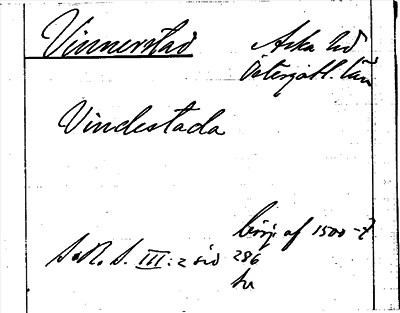 Vinnerstad
Aska hd
Östergötl. län
Vindestada
börj. af 1500-t
S.R.S. III:2 sid 286